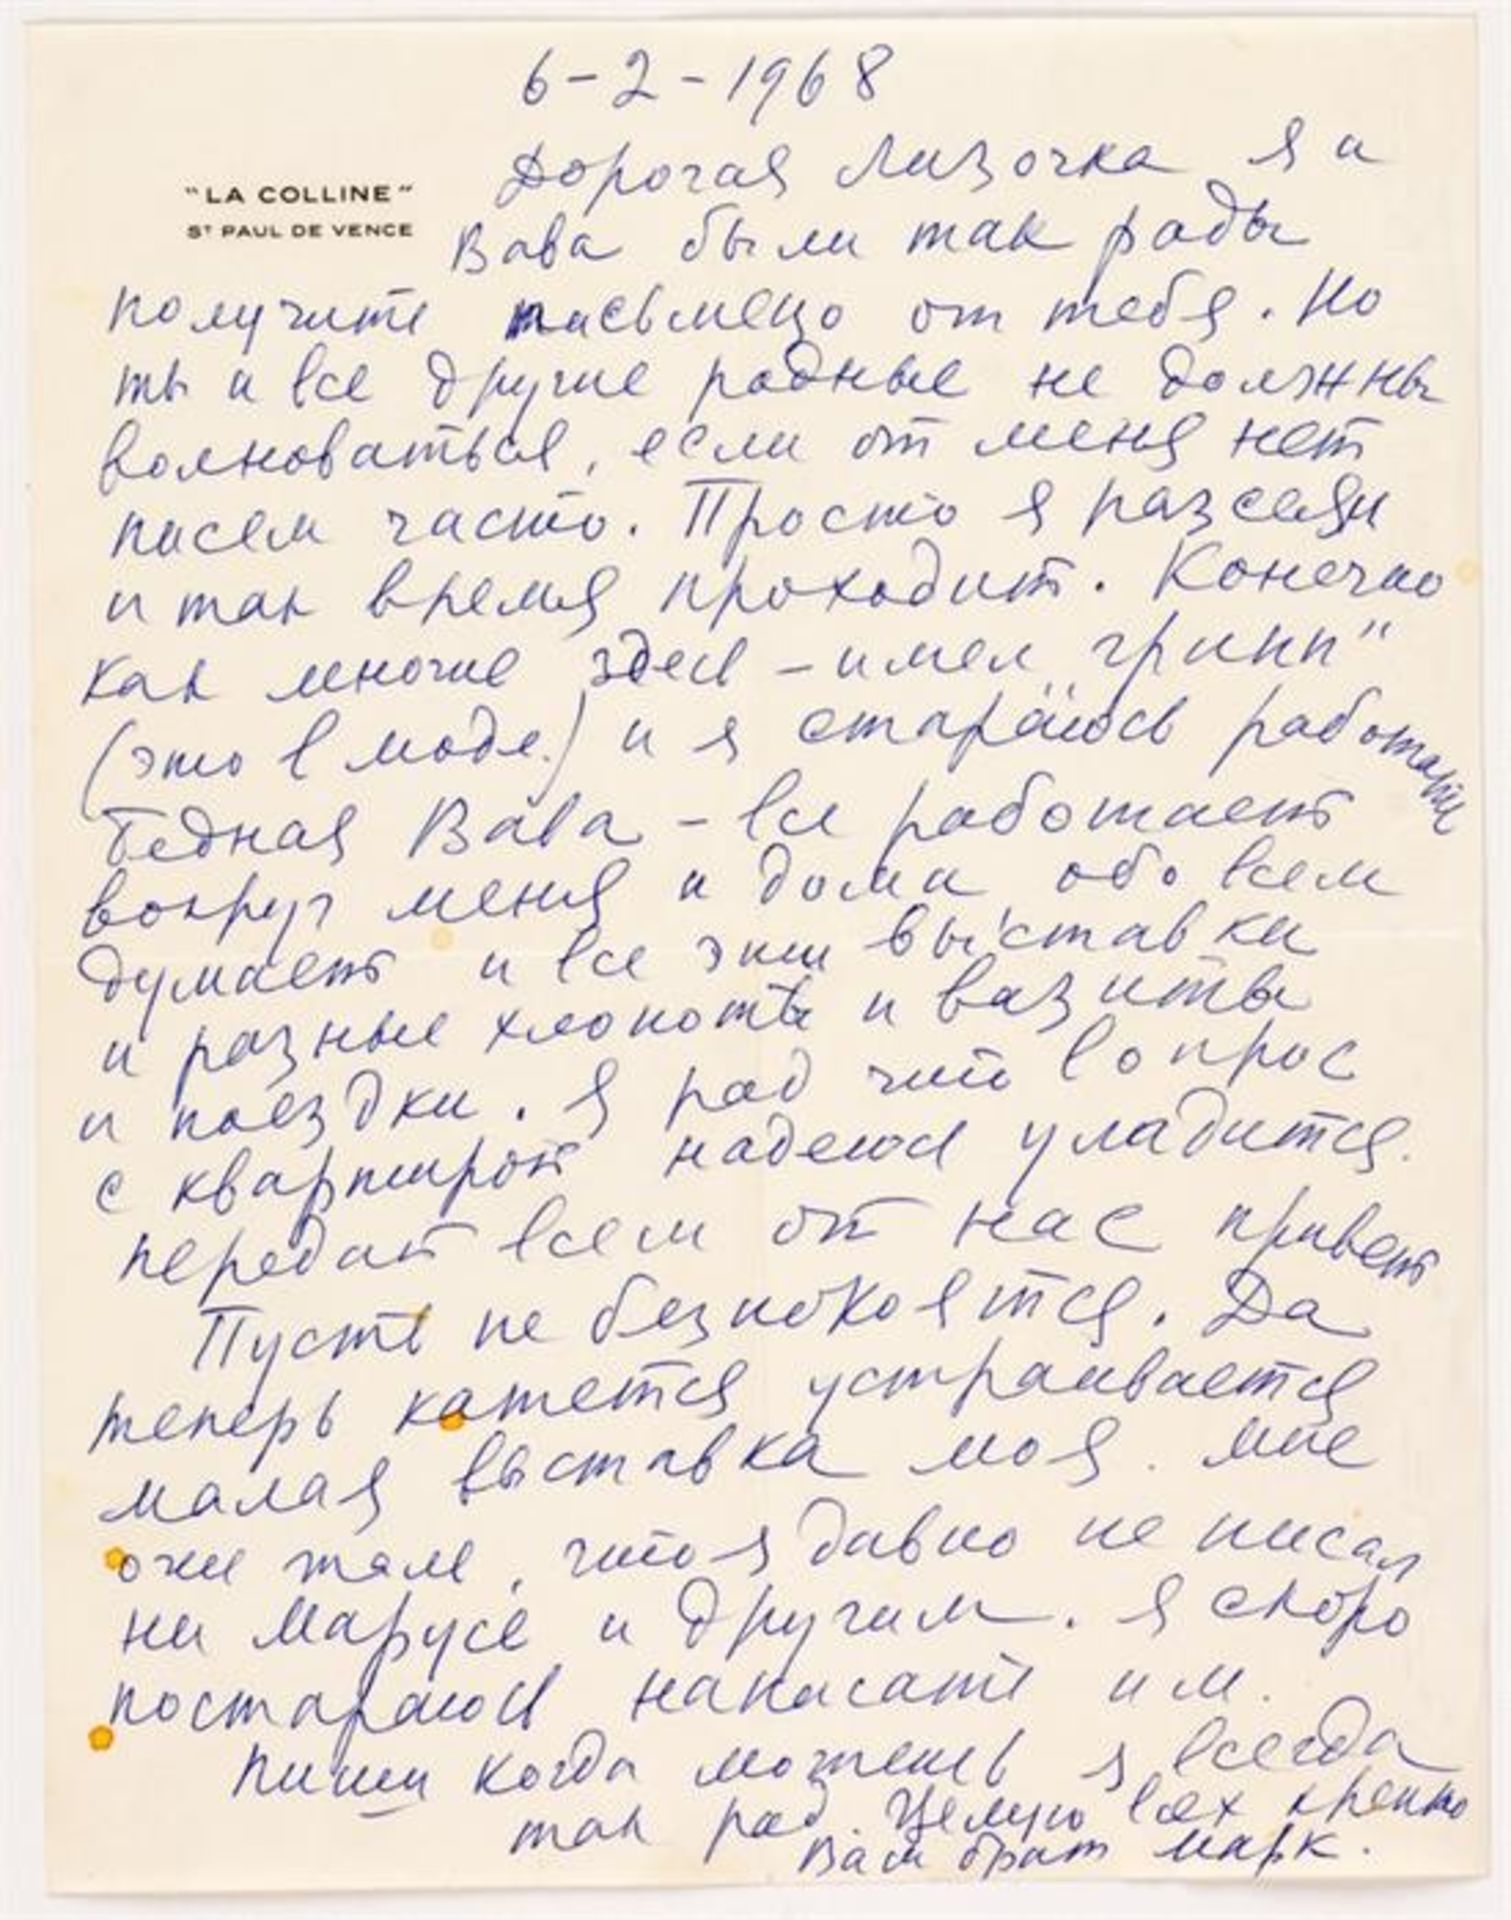 6-2-1968
"LA COLLINE"
Sт PAUL DE VENCE
Дорогая Лизочка я и
Вава были так рады
получить письмецо от тебя. Но
ты и все другие родные не должны
волноваться, если от меня нет
писем часто. Просто я разсеян
и так время проходит. Конечно
как многие здесь – имел „грипп"
(это в моде.) и я стараюсь работать
Бедная Вава – все работает
вокруг меня и дома обо всем
думает и все эти выставки
и разные хлопоты и визиты
и поездки. Я рад что вопрос
с квартирой надеюсь уладится.
передай всем от нас привет
Пусть не безпокоятся. Да
теперь кажется устраивается
малая выставка моя. мне
очень жаль, что я давно не писал
ни Марусе и другим. Я скоро
постараюсь написать им.
Пиши когда можешь я всегда
так рад. Целую всех крепко
Ваш брат Марк.